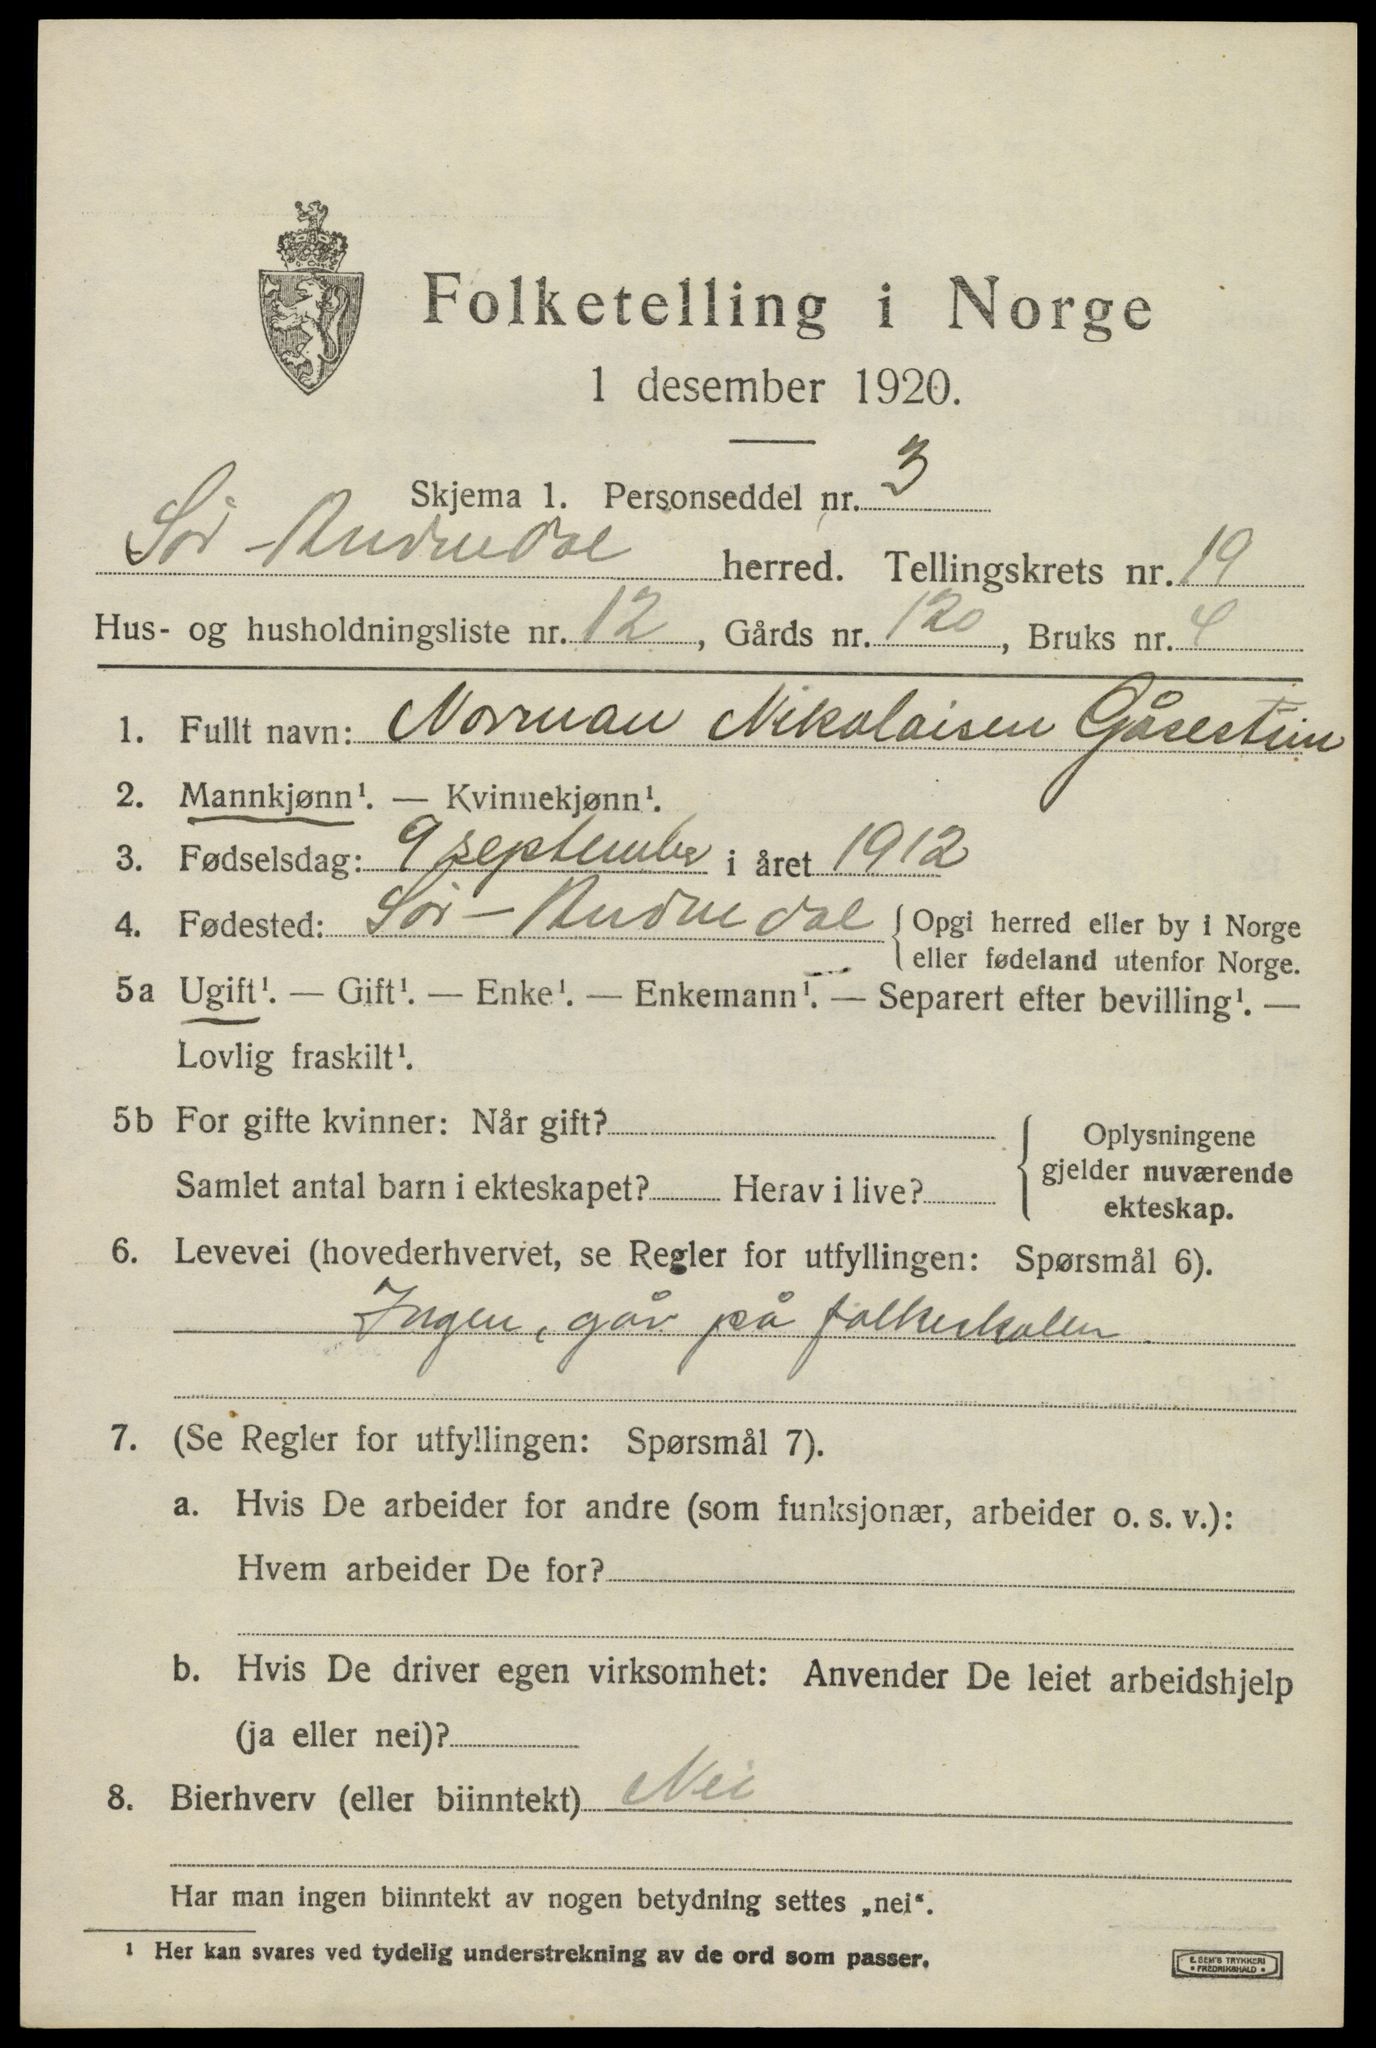 Folketelling i Norge
1 desember 1920.
Skjema 1. Personseddel nr. 3
Sør-Audnedal herred. Tellingskrets nr. 19
Hus- og husholdningsliste nr. 12, Gårds nr. 120, Bruks nr. 4
1. Fullt navn: Norman Nikolaisen Gåsestein
2. Mannkjønn¹. — Kvinnekjønn¹.
3. Fødselsdag: 9 september i året 1912
4. Fødested: Sør-Audnedal { Opgi herred eller by i Norge
eller fødeland utenfor Norge.
5a Ugift¹. — Gift¹. — Enke¹. — Enkemann¹. — Separert efter bevilling¹. —
Lovlig fraskilt¹.
5b For gifte kvinner: Når gift?
Samlet antal barn i ekteskapet? Herav i live?
{ Oplysningene
gjelder nuværende
ekteskap.
6. Levevei (hovederhvervet, se Regler for utfyllingen: Spørsmål 6).
Ingen, går på folkeskolen.
7. (Se Regler for utfyllingen: Spørsmål 7).
a. Hvis De arbeider for andre (som funksjonær, arbeider o. s. v.):
Hvem arbeider De for?
b. Hvis De driver egen virksomhet: Anvender De leiet arbeidshjelp
(ja eller nei)?
8. Bierhverv (eller biinntekt) Nei
Har man ingen biinntekt av nogen betydning settes „nei“.
¹ Her kan svares ved tydelig understrekning av de ord som passer.
E. SEM'S TRYKKERI
• FREDRIKSHALD •